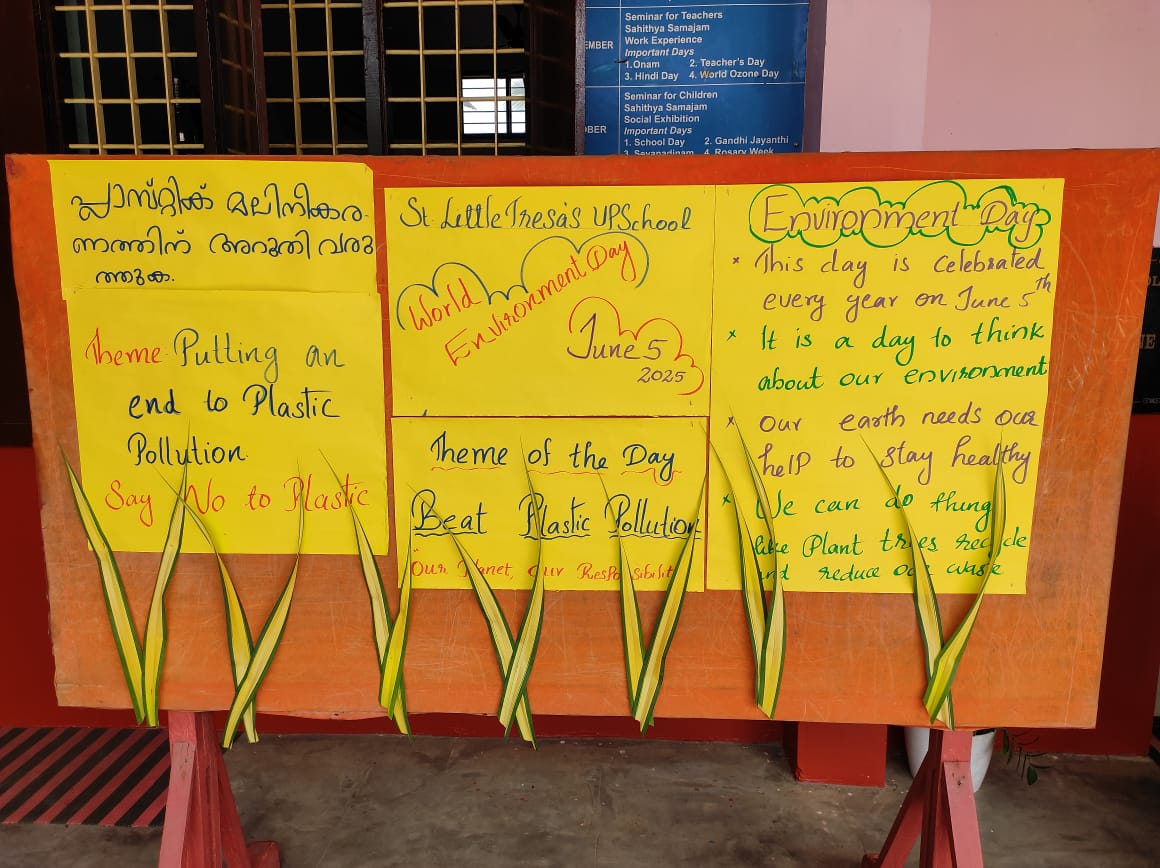 Seminar for Teachers
Sahithya Samajam
EMBER Work Experience
Important Days
1.Onam 2. Teacher's Day
3. Hindi Day 4. World Ozone Day
Seminar for Children
Sahithya Samajam
Social Exhibition
OBER Important Days
1. School Day 2. Gandhi Jayanthi
3. Sevanadinam 4. Rosary Week
പ്ലാസ്റ്റിക് മലിനീകര-
ണത്തിന് അറുതി വരു
ത്തുക.
Theme Putting an
end to Plastic
Pollution.
Say No to Plastic
St. Little Tresa's UPSchool
World
Environment Day
June 5
2025
Theme of the Day
Beat Plastic Pollution
"Our Planet, our Responsibility
Environment Day
× This day is celebrated
every year on June 5th
× It is a day to think
about our environment
× Our earth needs our
help to stay healthy
× We can do thing
like Plant trees recycle
and reduce our waste